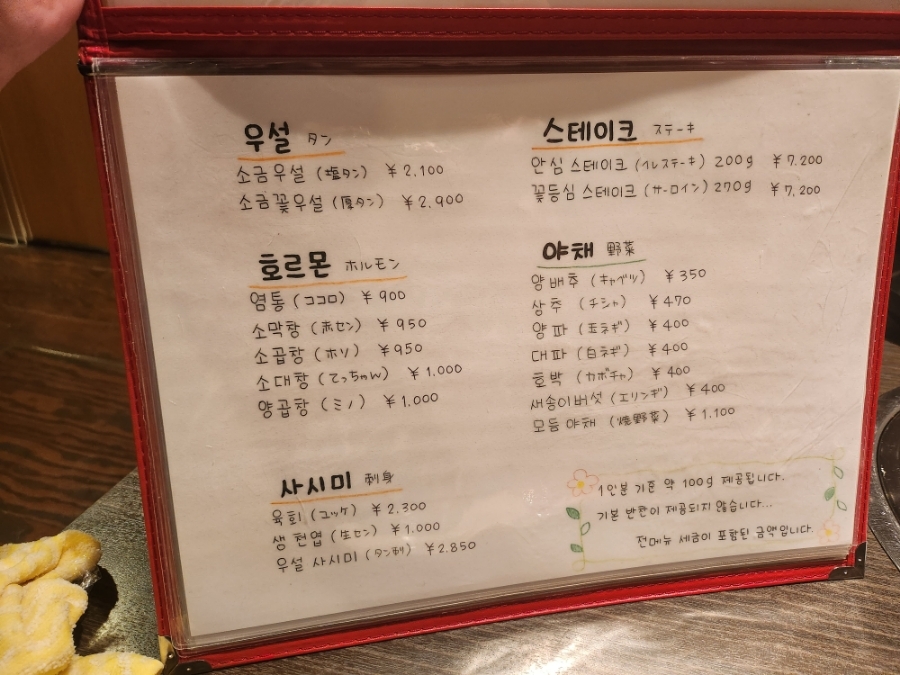 우설 タン
소금우설 (塩タン) ¥2,100
소금꽃우설 (厚タン) ¥2,900
호르몬 ホルモン
염통 (ココロ) ¥900
소막창 (赤セン) ¥950
소곱창 (ホソ) ¥950
소대창 (てっちゃん) ¥1,000
양곱창 (ミノ) ¥1,000
사시미 刺身
육회 (ユッケ) ¥2,300
생 천엽 (生セン) ¥1,000
우설 사시미 (タン刺) ¥2,850
스테이크 ステーキ
안심 스테이크 (ヘレステーキ) 200g ¥7,200
꽃등심 스테이크 (サーロイン) 270g ¥7,200
야채 野菜
양배추 (キャベツ) ¥350
상추 (チシャ) ¥470
양파 (玉ネギ) ¥400
대파 (白ネギ) ¥400
호박 (カボチャ) ¥400
새송이버섯 (エリンギ) ¥400
모듬 야채 (焼野菜) ¥1,100
1인분 기준 약 100g 제공됩니다.
기본 반찬이 제공되지 않습니다...
전메뉴 세금이 포함된 금액입니다.